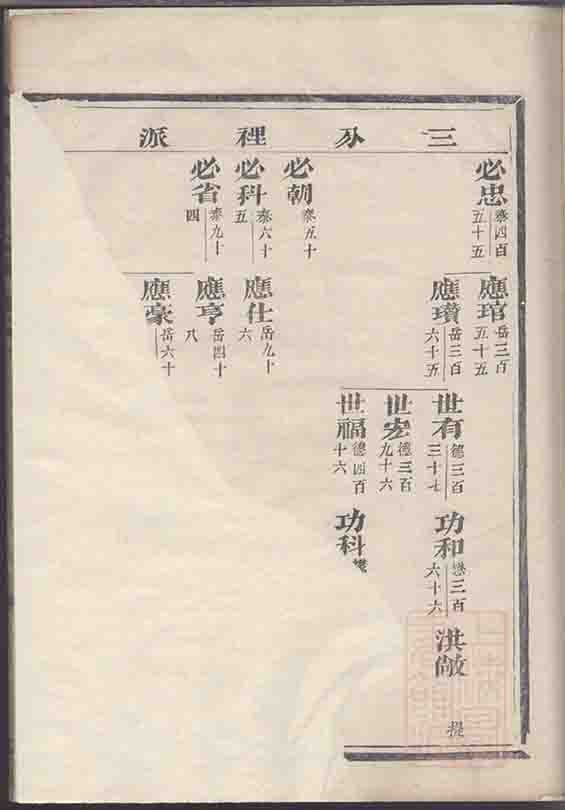 三分裡派
必忠 泰四百五十五
必朝 泰五十
必科 泰六十五
必省 泰九十四
應琯 岳三百五十五
應瓚 岳三百六十五
應仕 岳九十六
應亨 岳四十八
應豪 岳六十
世有 德三百三十七
世宏 德三百九十六
世福 德四百十六
功和 懋三百六十六
功科 懋
洪 提